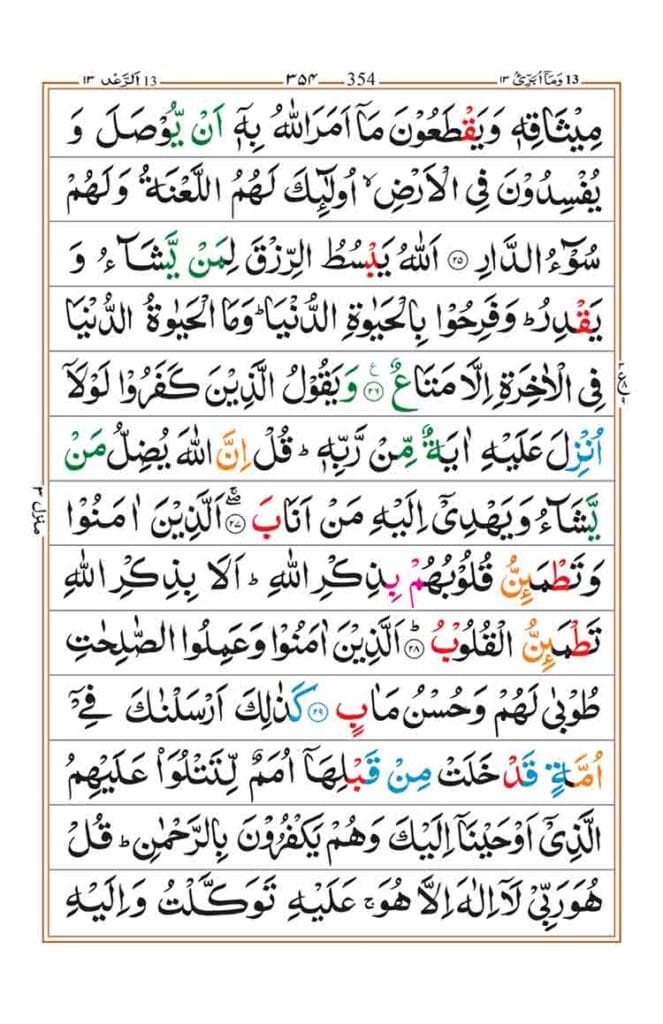 اَلرَّعْد ١٣ 13
٣٥٤ 354
وَمَآ اُبَرِّئُ ١٣ 13
مِيْثَاقِهٖ وَيَقْطَعُوْنَ مَآ اَمَرَ اللّٰهُ بِهٖٓ اَنْ يُّوْصَلَ وَ
يُفْسِدُوْنَ فِى الْاَرْضِ ۙ اُولٰٓئِكَ لَهُمُ اللَّعْنَةُ وَلَهُمْ
سُوْٓءُ الدَّارِ ۝٢٥ اَللّٰهُ يَبْسُطُ الرِّزْقَ لِمَنْ يَّشَآءُ وَ
يَقْدِرُ ؕ وَفَرِحُوْا بِالْحَيٰوةِ الدُّنْيَا ؕ وَمَا الْحَيٰوةُ الدُّنْيَا
فِى الْاٰخِرَةِ اِلَّا مَتَاعٌ ۝٢٦ وَيَقُوْلُ الَّذِيْنَ كَفَرُوْا لَوْلَآ
اُنْزِلَ عَلَيْهِ اٰيَةٌ مِّنْ رَّبِّهٖ ؕ قُلْ اِنَّ اللّٰهَ يُضِلُّ مَنْ
يَّشَآءُ وَيَهْدِىْٓ اِلَيْهِ مَنْ اَنَابَ ۝٢٧ اَلَّذِيْنَ اٰمَنُوْا
وَتَطْمَئِنُّ قُلُوْبُهُمْ بِذِكْرِ اللّٰهِ ؕ اَلَا بِذِكْرِ اللّٰهِ
تَطْمَئِنُّ الْقُلُوْبُ ؕ ۝٢٨ اَلَّذِيْنَ اٰمَنُوْا وَعَمِلُوا الصّٰلِحٰتِ
طُوْبٰى لَهُمْ وَحُسْنُ مَاٰبٍ ۝٢٩ كَذٰلِكَ اَرْسَلْنٰكَ فِىْٓ
اُمَّةٍ قَدْ خَلَتْ مِنْ قَبْلِهَآ اُمَمٌ لِّتَتْلُوَا۟ عَلَيْهِمُ
الَّذِىْٓ اَوْحَيْنَآ اِلَيْكَ وَهُمْ يَكْفُرُوْنَ بِالرَّحْمٰنِ ؕ قُلْ
هُوَ رَبِّىْ لَآ اِلٰهَ اِلَّا هُوَ ۚ عَلَيْهِ تَوَكَّلْتُ وَاِلَيْهِ
منزل ٣